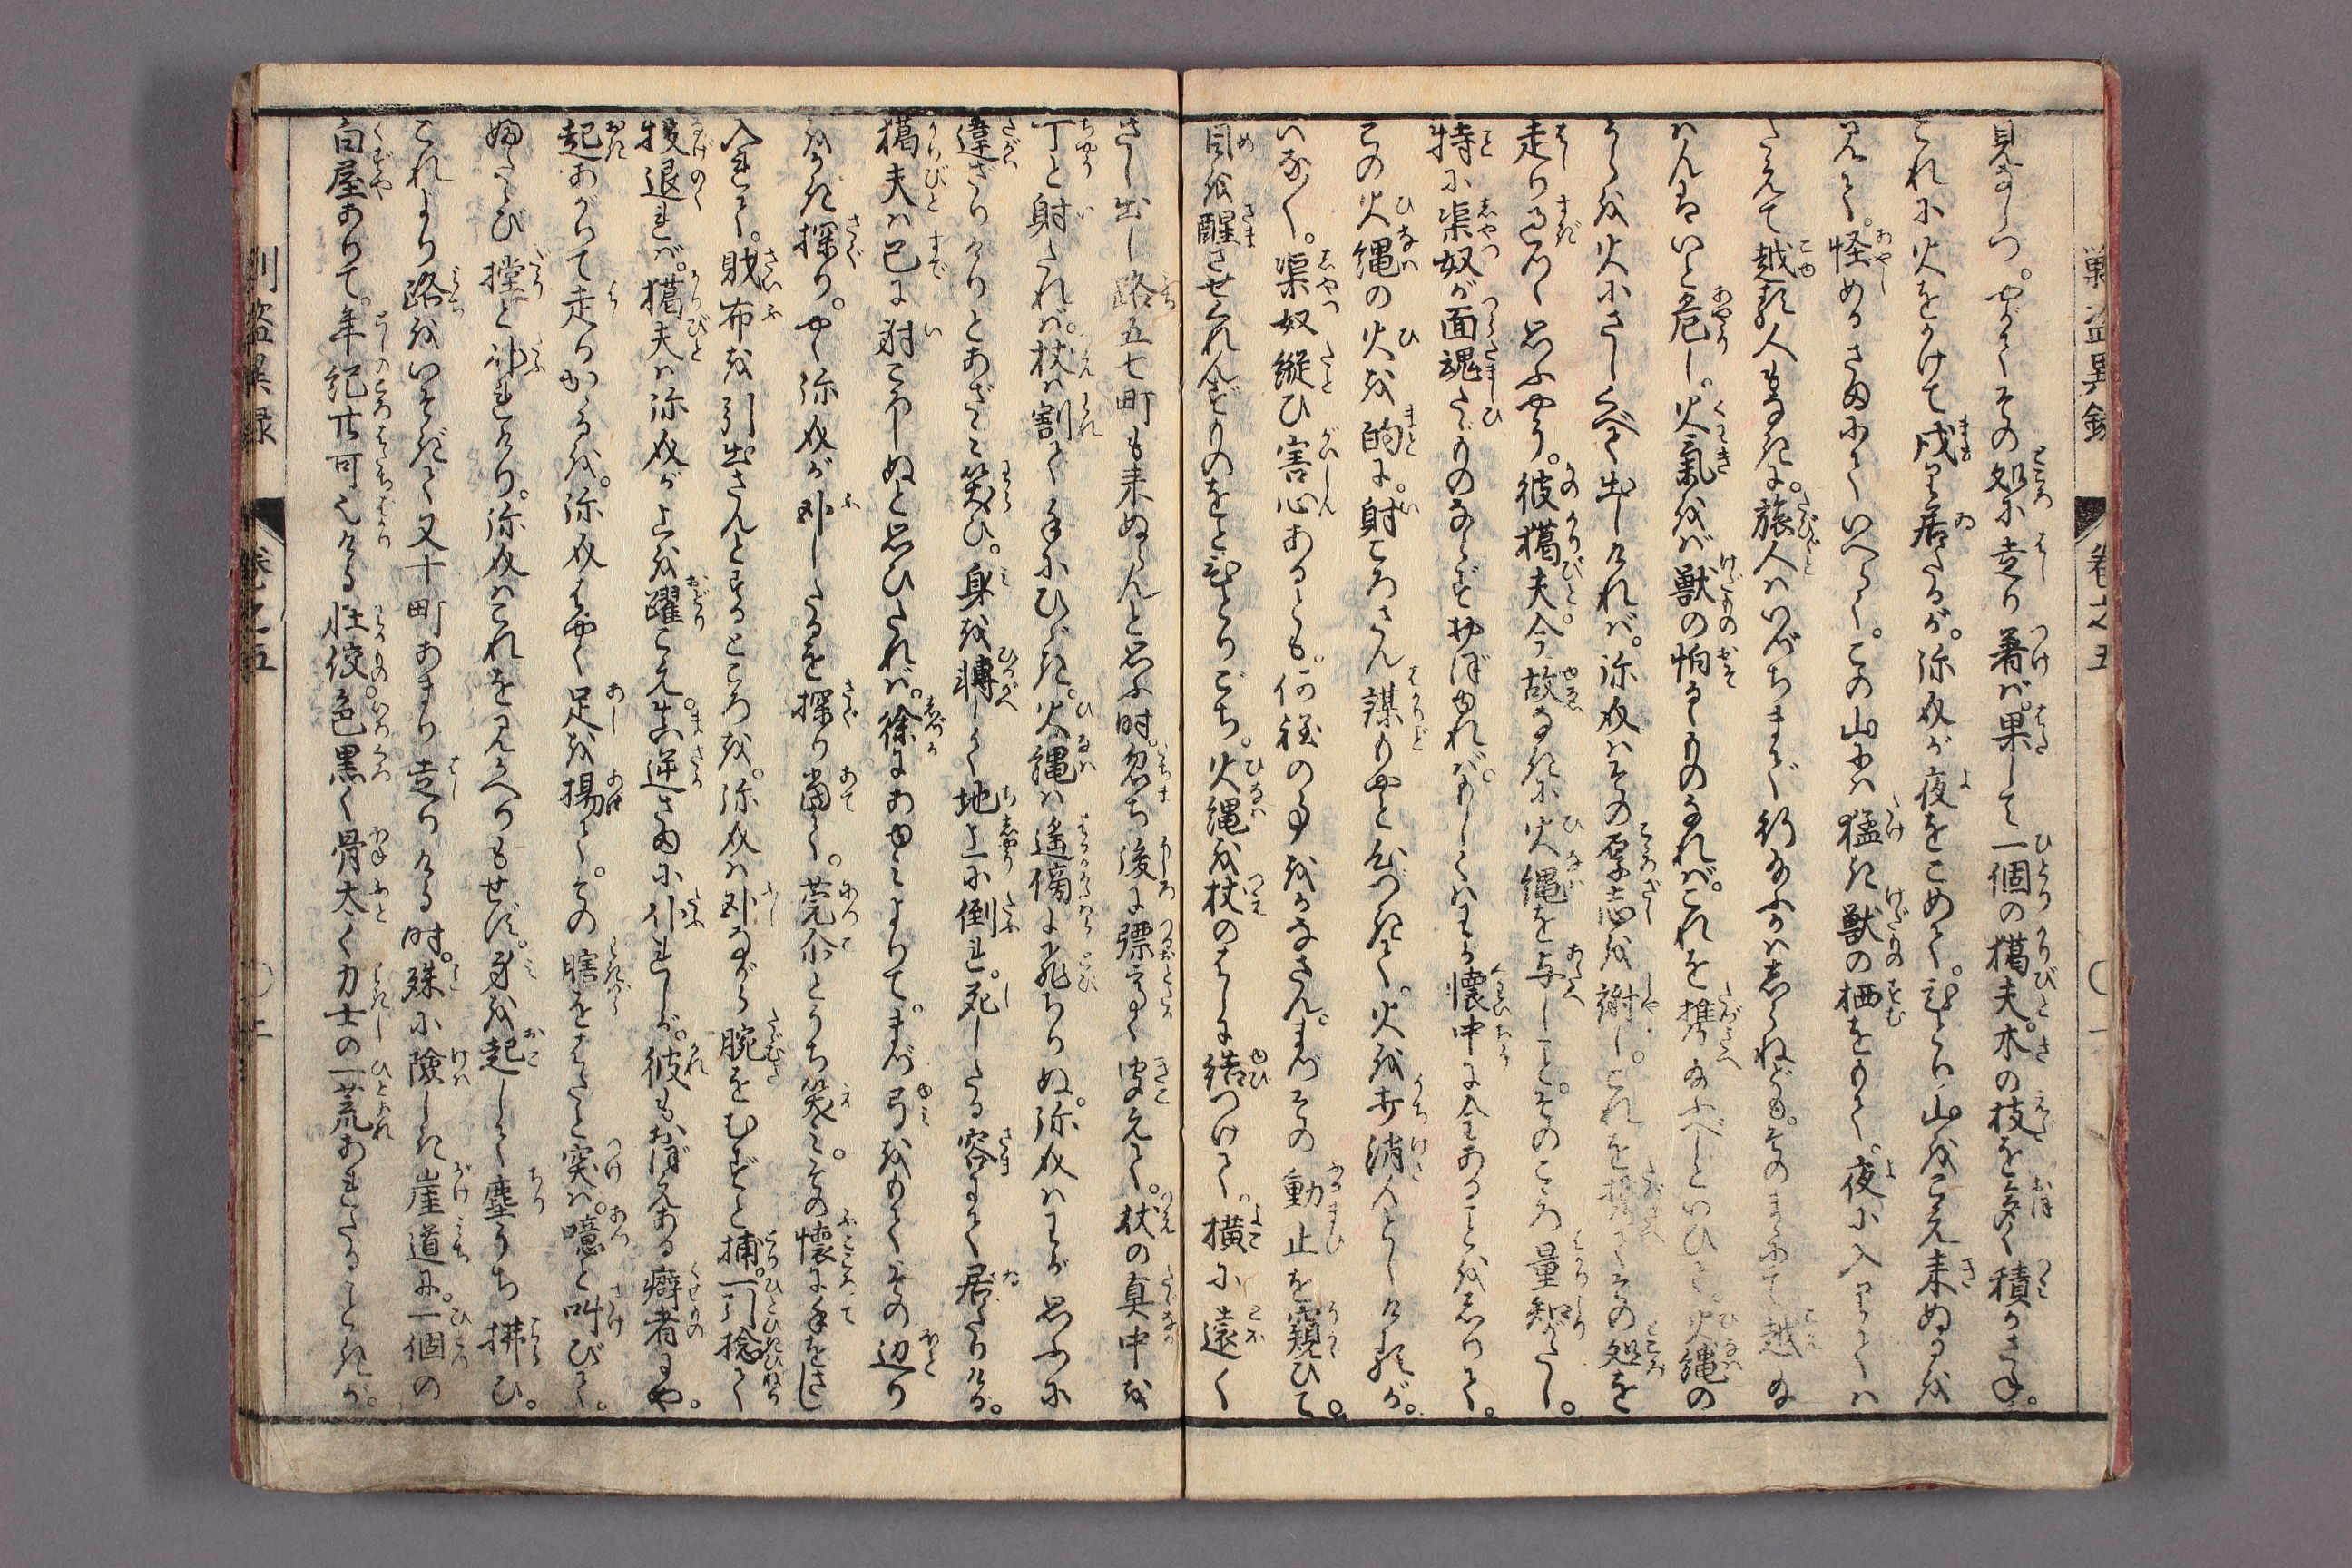 見なしつ。やがてその処に走り着ば。果して一個の猟夫。木の枝を多く積かさね。
これに火をかけて戍り居たるが。弥奴が夜をこめて。ひとり山を越え来ぬるを
見て。怪めるさまにていへらく。この山には猛き獣の栖をもて。夜に入りては
たえて越る人もなきに。旅人はいづちまで行給ふかはしらねども。そのまゝにて越給
はんはいと危し。火気をば獣の怕るゝものなれば。これを携給ふべしといひて。火縄の
うらを火にさしくべて出しければ。弥奴はその厚志を謝し。これを携てその処を
走り過つゝ思ふやう。彼猟夫。今故なきに火縄を与しこと。そのこゝろ量知がたし。
特に渠奴が面魂たゞものならずおぼゆれば。もしくはわが懐中に金あることをしりて。
この火縄の火を的に。射ころさん謀りやと心づきて。火を打消んとしけるが。
いな／＼。渠奴縦ひ害心あるとも。何程の事をかなさん。まづその動止を窺ひて。
目を醒させくれんずものをとひとりごち。火縄を杖のはしに結つけて。横に遠く
さし出し路五七町も来ぬらんと思ふ時。忽ち後に弦音高く聞えて。杖の真中を
丁と射たれば。杖は割て手にひゞき。火縄は遙傍に飛ちりぬ。弥奴はわが思ふに
違ざりけりとあざみ笑ひ。身を転して地上に倒れ。死したる容して居たりける。
猟夫は已に射ころしぬと思ひたれば。徐にあゆみよりて。まづ弓をもてその辺り
をかき探り。やゝ弥奴が臥したるを探り当て。莞尓とうち笑み。その懐に手をさし
入れて。財布を引出さんとするところを。弥奴は臥ながら腕をむずと捕。一引捻て
投退れば。猟夫は弥奴が上を躍こえ。真逆さまに仆れしが。彼もおぼえある癖者にや。
起あがりて走りかゝるを。弥奴はやく足を揚て。その脇をはたと突ば。噫と叫びて。
ふたゝび撞と仆れけり。弥奴はこれを見かへりもせず。身を起して塵うち拂ひ。
これより路をいそぎて又十町あまり走りける時。殊に険しき崖道に。一個の
白屋ありて。年紀廿可なりける壮佼。色黒く骨太く力士の一荒あれたるごときが。
巣盗異録
巻之五